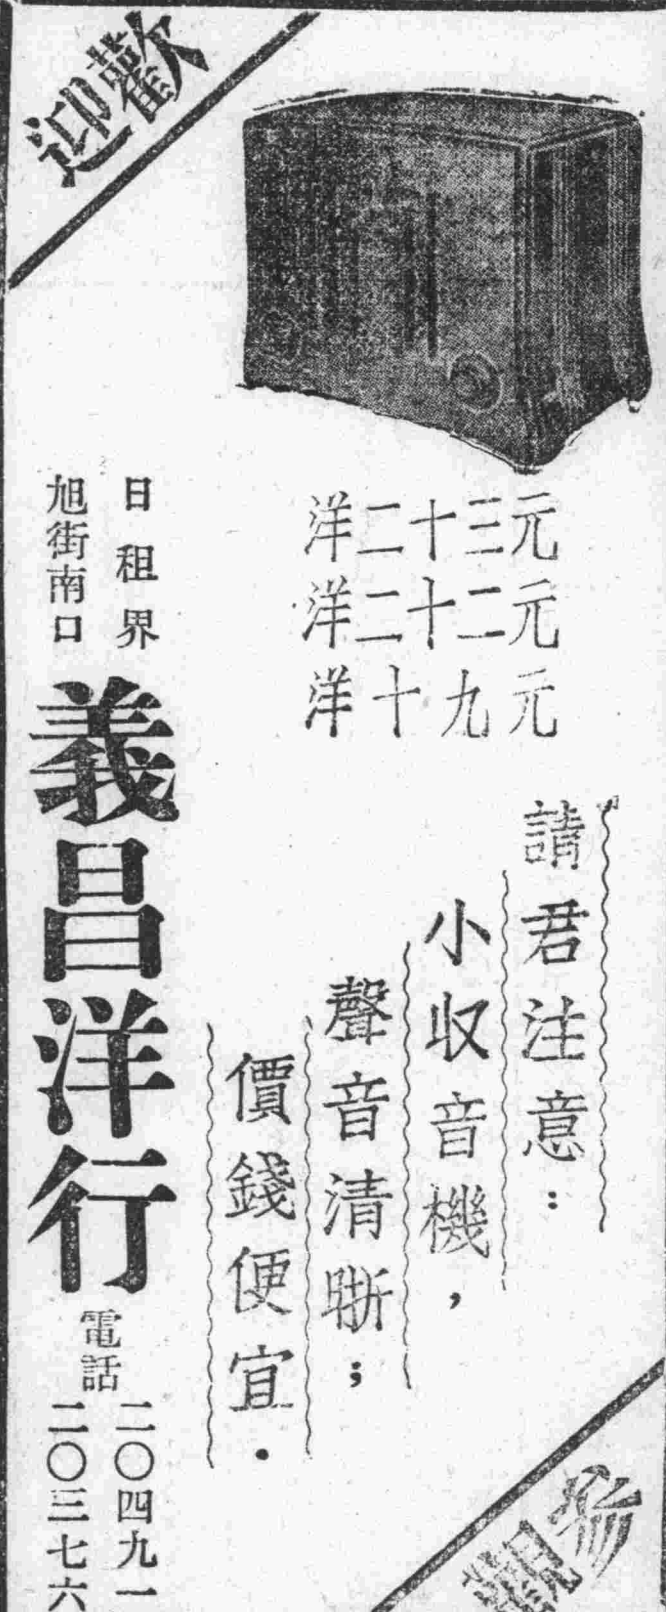 歡迎
洋二十三元
洋二十二元
洋十九元
請君注意：
小收音機，
聲音清晣；
價錢便宜．
日租界
旭街南口
義昌洋行
電話
二〇四九一
二〇三七六
參觀